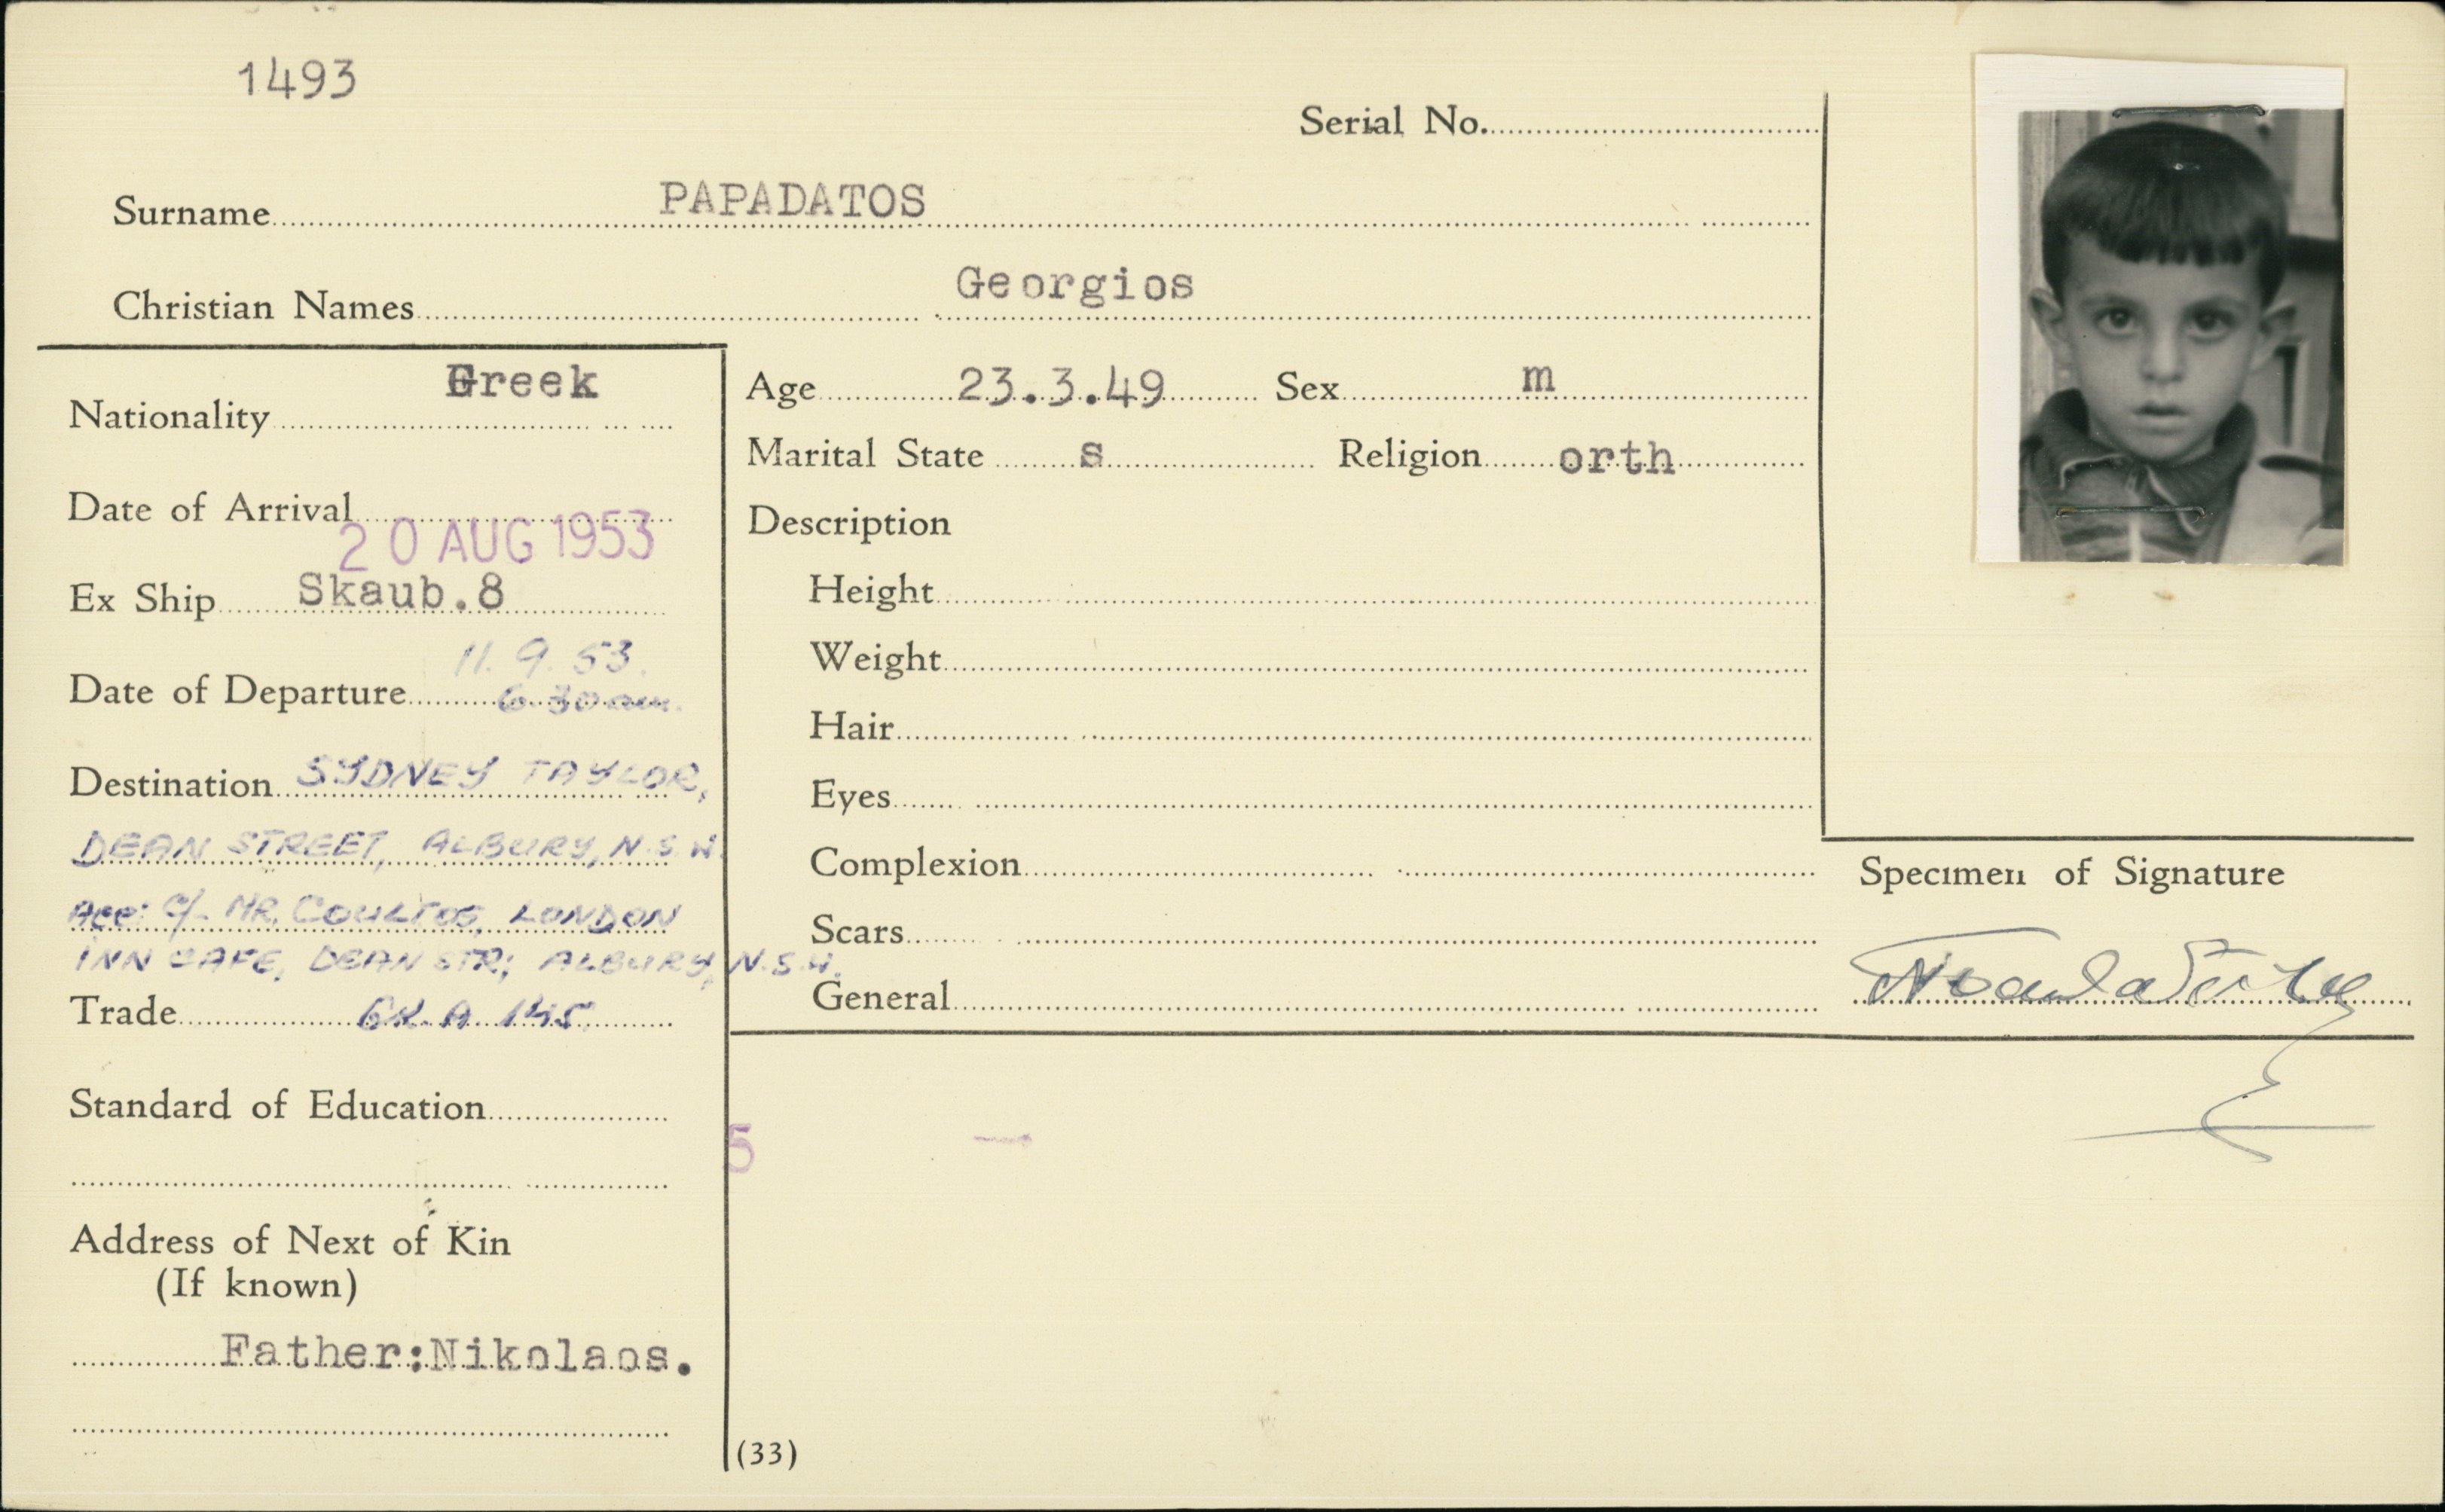 1493
Serial No.
Surname PAPADATOS
Christian Names Georgios
Nationality Greek
Date of Arrival 20 AUG 1953
Ex Ship Skaub.8
Date of Departure 11. 9. 53.
6.30 am.
Destination SYDNEY TAYLOR,
DEAN STREET, ALBURY, N.S.W.
Acc: c/- MR. COULTOS, LONDON
INN CAFE, DEAN STR; ALBURY, N.S.W.
Trade GK. A. 145
Standard of Education
Address of Next of Kin
(If known)
Father:Nikolaos.
Age 23.3.49 Sex m
Marital State s Religion orth
Description
Height
Weight
Hair
Eyes
Complexion
Scars
General
5
(33)
Specimen of Signature